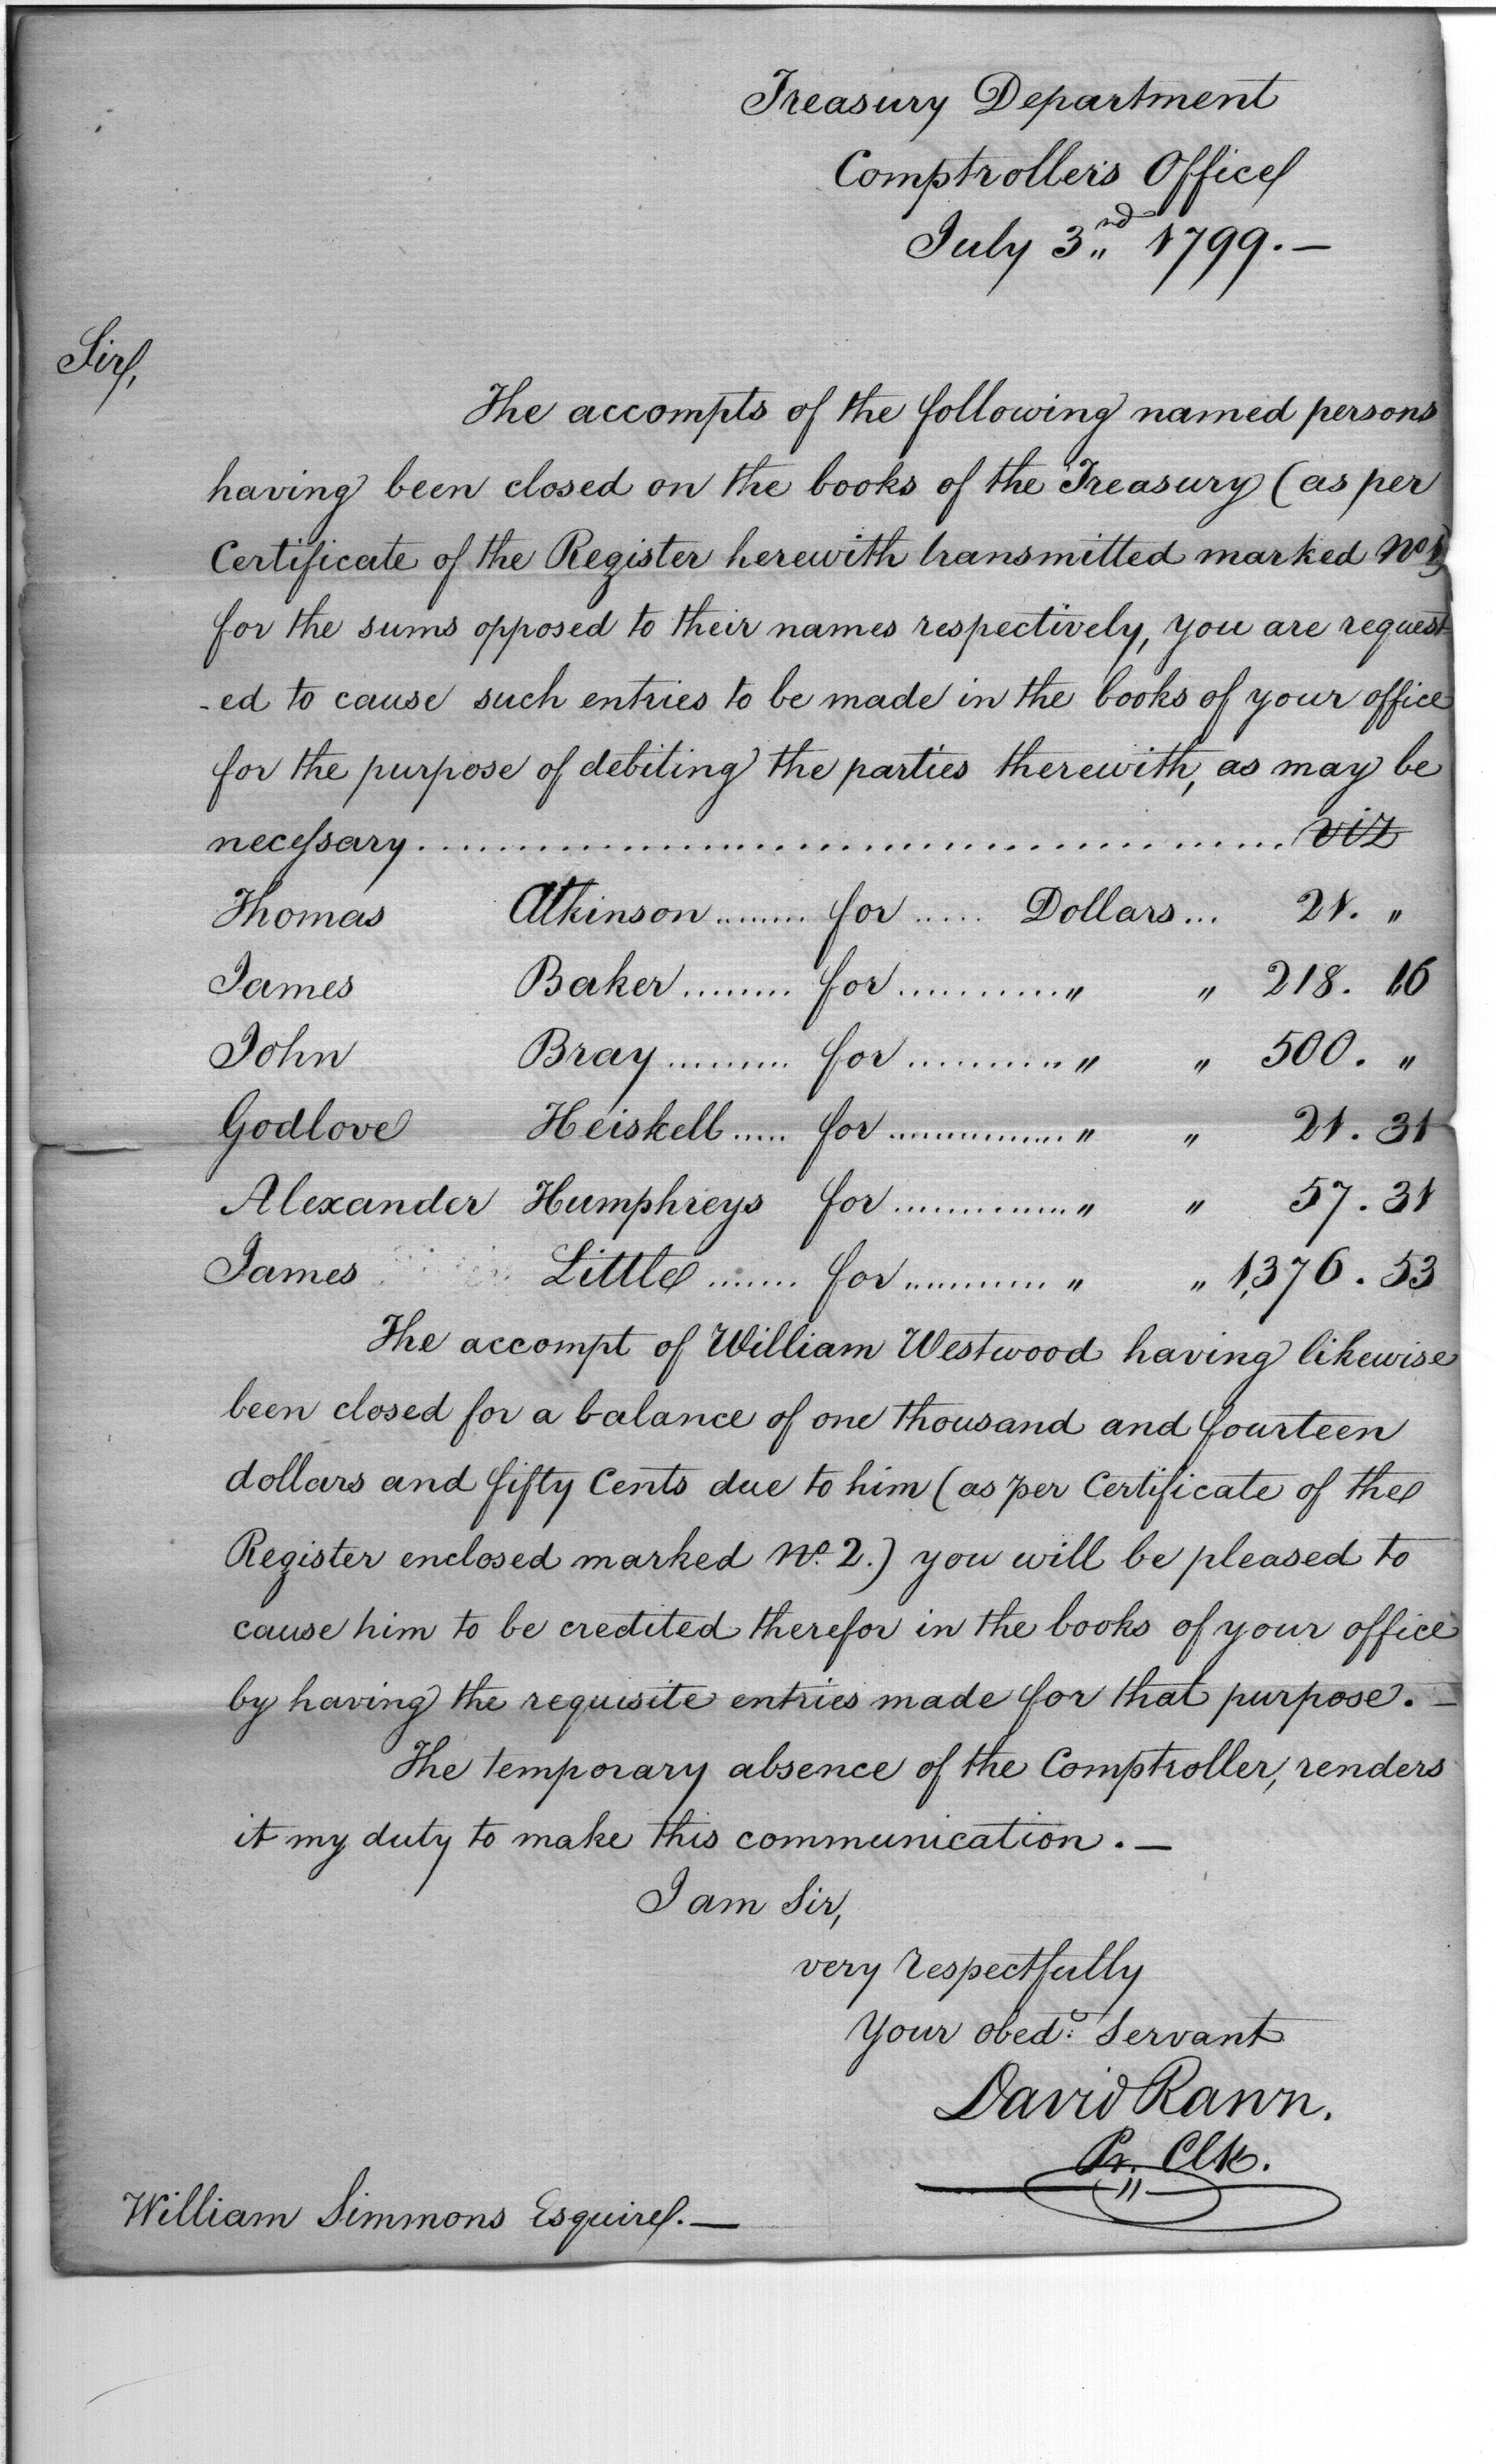 Treasury Department
Comptroller's Office
July 3nd 1799. —
Sir,
The accompts of the following named persons
having been closed on the books of the Treasury (as per
Certificate of the Register herewith transmitted marked No 1)
for the sums opposed to their names respectively, you are request
-ed to cause such entries to be made in the books of your office
for the purpose of debiting the parties therewith, as may be
necessary ........................................ viz
Thomas Atkinson ........ for ..... Dollars ... 21. "
James Baker ........ for ........... " " 218. 16
John Bray ......... for ........... " " 500. "
Godlove Heiskell ..... for .............. " " 21. 31
Alexander Humphreys for .............. " " 57. 31
James Little ....... for ............ " " 1,376. 53
The accompt of William Westwood having likewise
been closed for a balance of one thousand and fourteen
dollars and fifty Cents due to him (as per Certificate of the
Register enclosed marked No. 2.) you will be pleased to
cause him to be credited therefor in the books of your office
by having the requisite entries made for that purpose. —
The temporary absence of the Comptroller, renders
it my duty to make this communication. —
I am Sir,
very respectfully
Your obedt. Servant
David Rawn.
Pr. Clk.
William Simmons Esquire. —